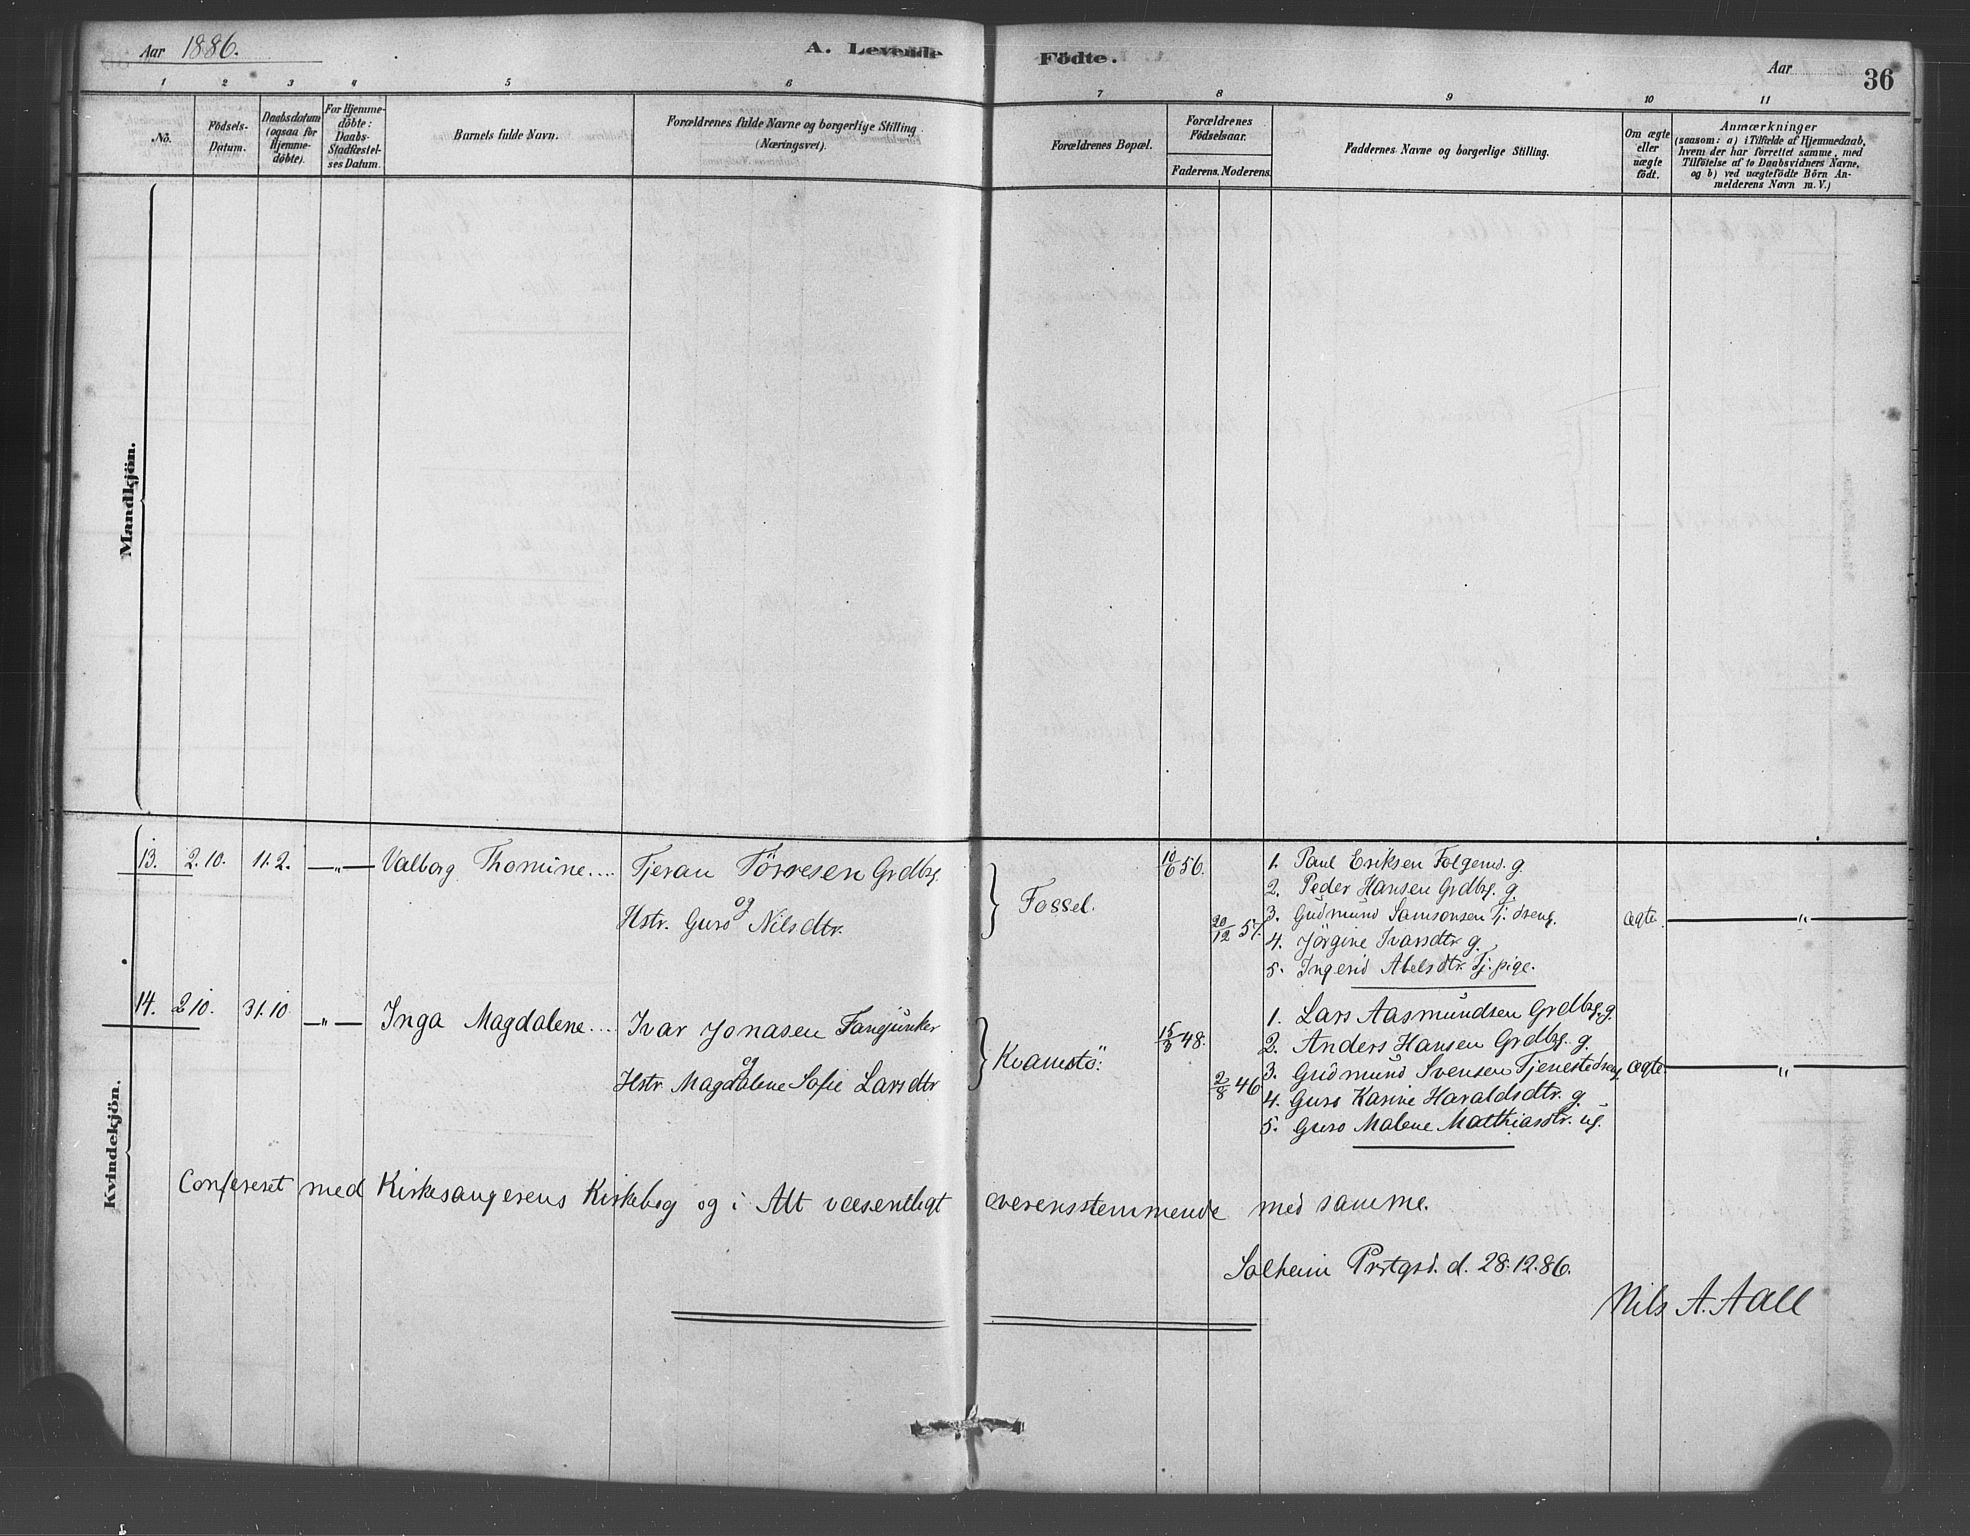 Aar 1886.
A. Levende
Födte.
Aar
36
1 2 3 4 5 6 7 8 9 10 11
No.
Födsels-
Datum.
Daabsdatum
(ogsaa for
Hjemme-
döbte).
For Hjemme-
döbte:
Daabs-
Stadfæstel-
ses Datum.
Barnets fulde Navn.
Forældrenes fulde Navne og borgerlige Stilling
(Næringsvei).
Forældrenes Bopæl.
Forældrenes
Födselsaar.
Faderens. Moderens.
Faddernes Navne og borgerlige Stilling.
Om ægte
eller
uægte
födt.
Anmærkninger
(saasom: a) i Tilfælde af Hjemmedaab,
hvem der har forrettet samme, med
Tilföielse af to Daabsvidners Navne,
og b) ved uægtefödte Börn An-
melderens Navn m. V.)
Mandkjön.
Kvindekjön.
13. 2.10. 11.2. —„— Valborg Thomine.... Tjeran Törresen Grdbg.
og
Hstr. Guro Nilsdtr.
Fossel.
10/6 56.
20/12 57.
1. Paul Eriksen Folgemd. g.
2. Peder Hansen Grdbg. g.
3. Gudmund Samsonsen Tj. dreng.
4. Jörgine Ivarsdtr. g.
5. Ingerid Abelsdtr. Tj. pige.
ægte. —„—
14. 2.10. 31.10 —„— Inga Magdalene... Ivar Jonasen
og
Hstr. Magdalene Sofie Larsdtr.
Kvamstö.
48.
2/8 46
1. Lars Aasmundsen Grdbg. g.
2. Anders Hansen Grdbg. g.
3. Gudmund Svensen Tjenestedreng
4. Guro Karine Haraldsdtr. g.
5. Guro Malene Matthiasdtr. ug.
ægte. —„—
Confereret med Kirkesangerens Kirkebog og i Alt væsentligt overensstemmende med samme.
Solheim Prstgrd. d. 28.12.86.
Nils A. Aall